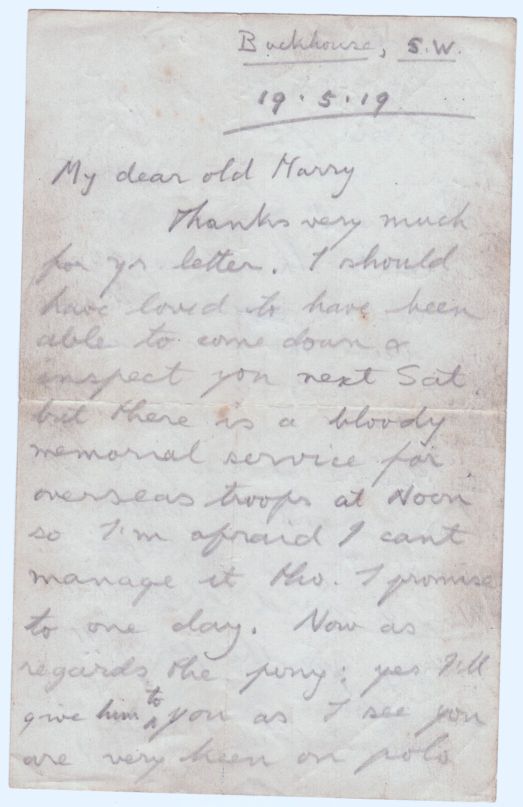 Buckhouse, S.W.
19.5.19
My dear old Harry
Thanks very much
for yr letter. I should
have loved to have been
able to come down &
inspect you next Sat.
but there is a bloody
memorial service for
overseas troops at Noon
so I'm afraid I cant
manage it tho. I promise
to one day. Now as
regards the pony: yes I'll
give him to you as I see you
are very keen on polo